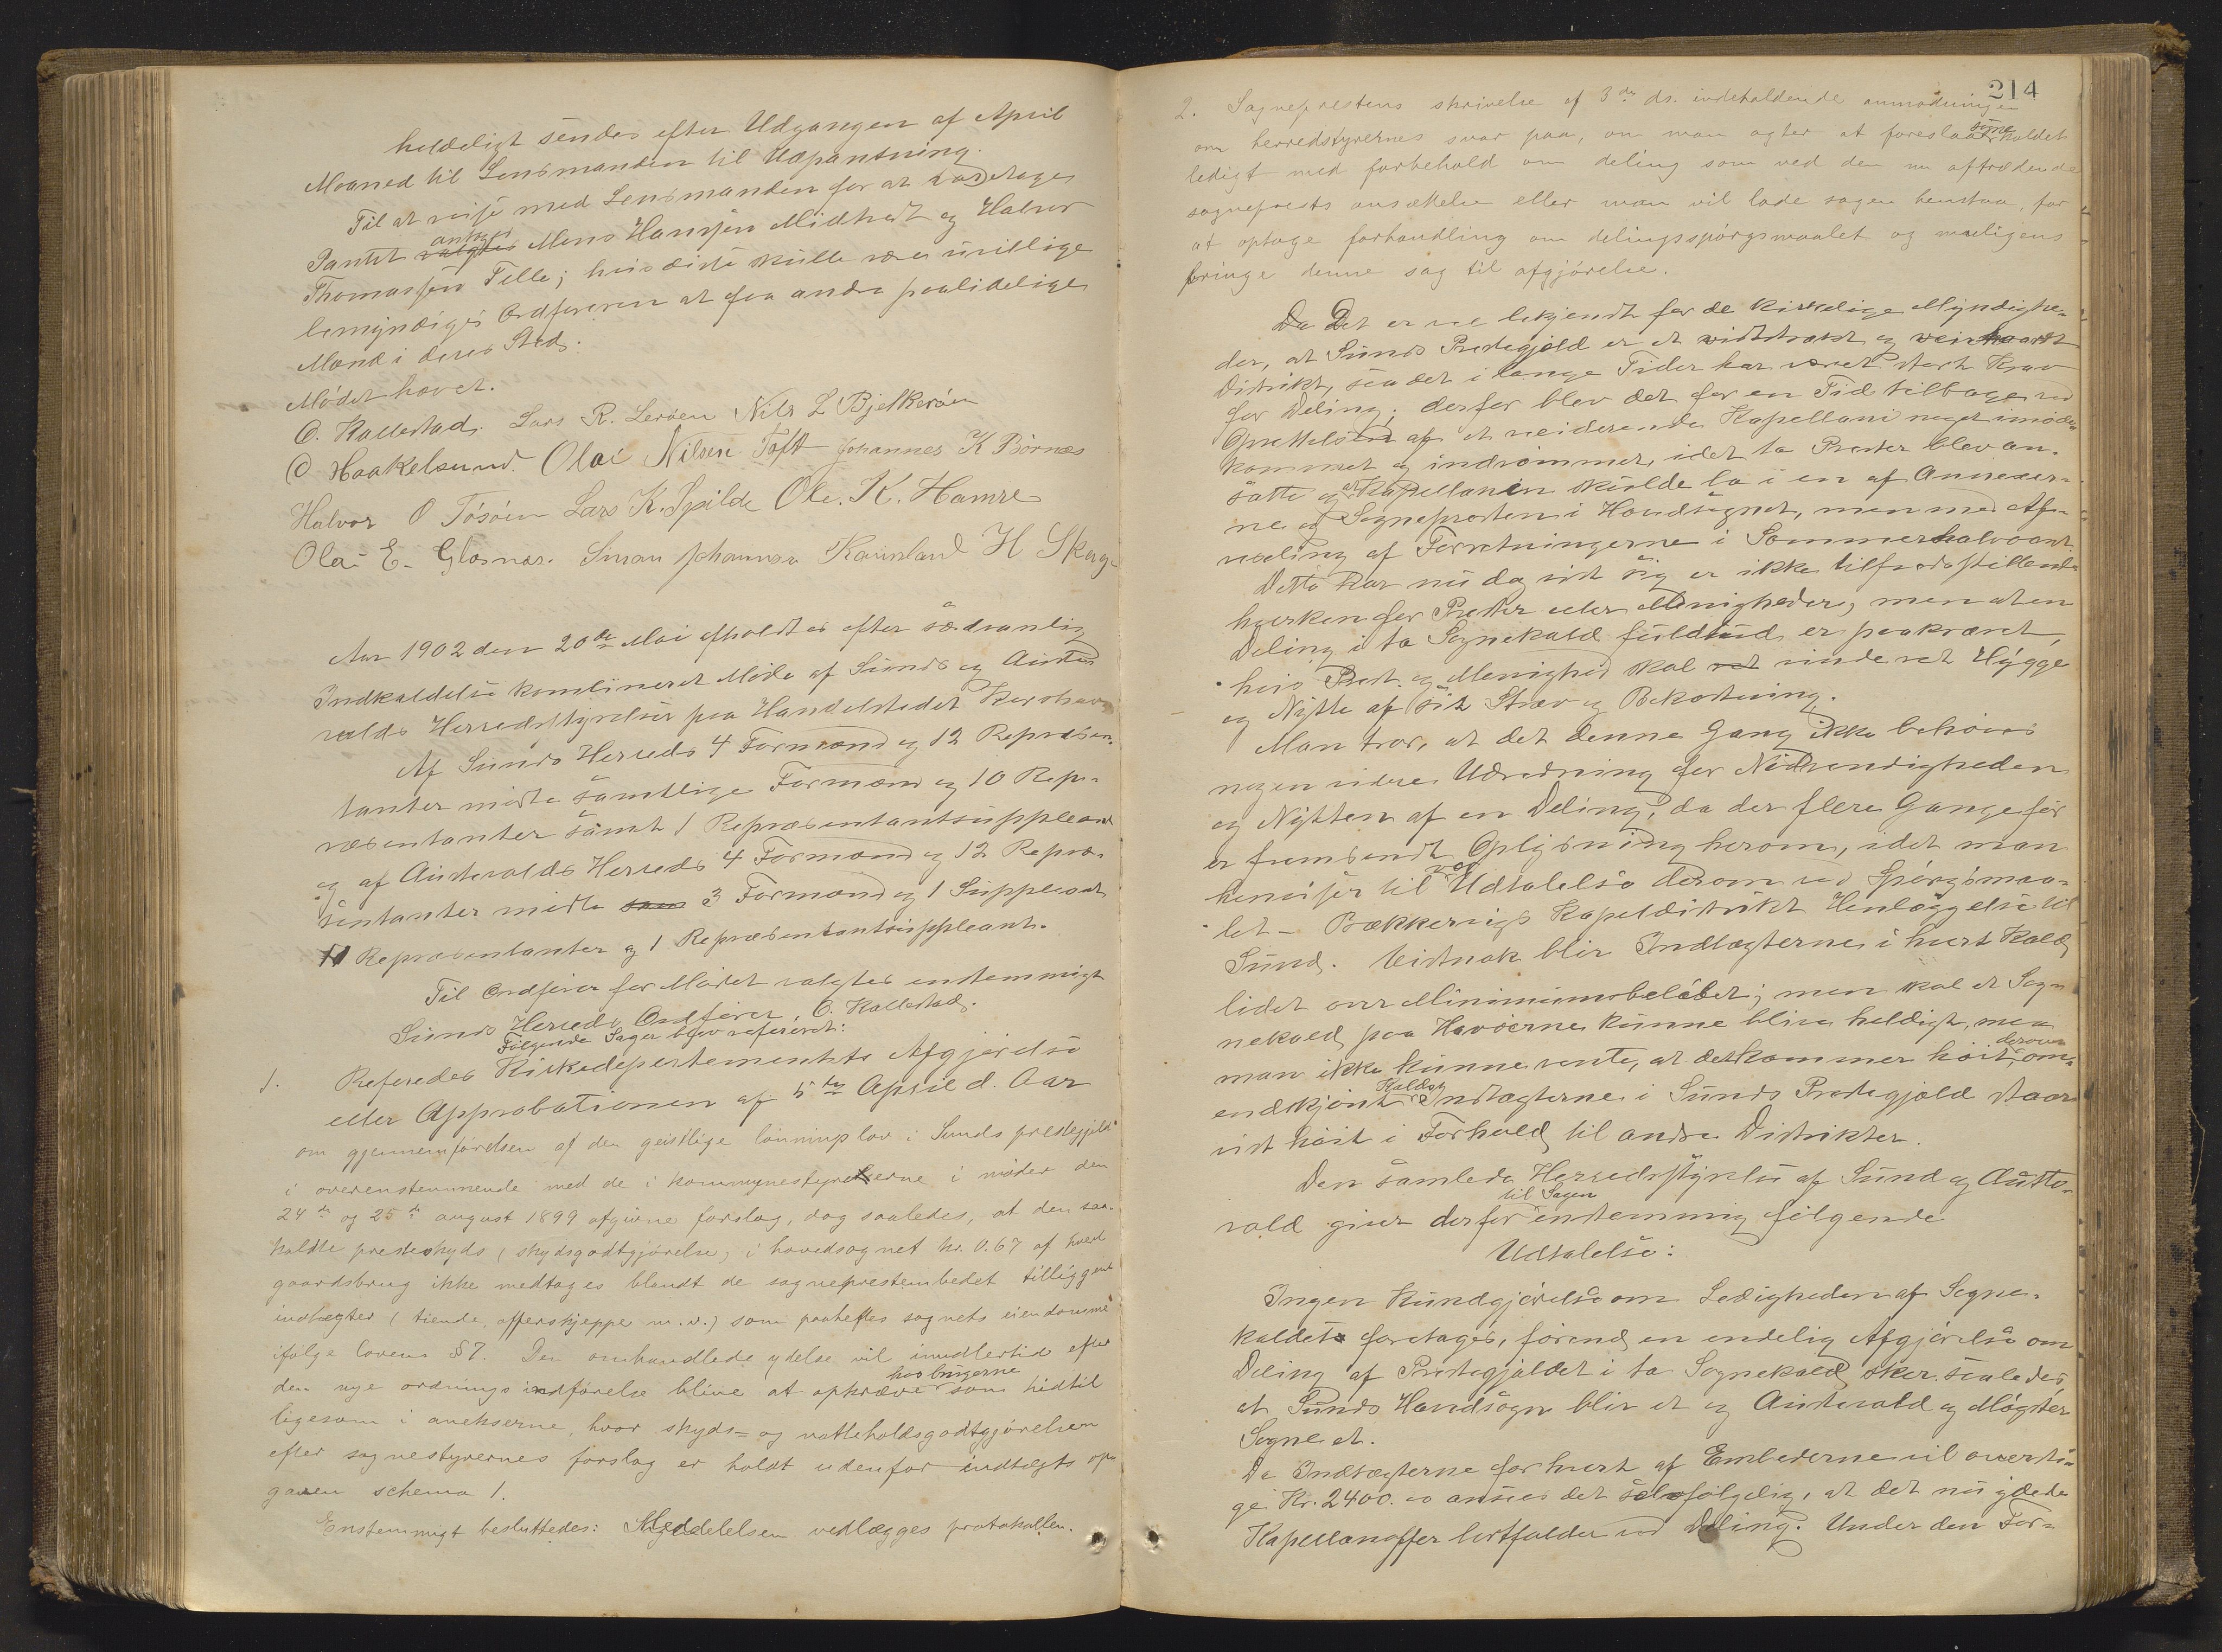 heldeligt sendes efter Udgangen af April
Maaned til Lensmanden til Udpantning.
Til at reise med Lensmanden for at
Pantet valgtes antoges Mons Hansen Midtvedt og Halvor
Thomassen Telle; hvis disse skulle være uvillige
bemyndiges Ordføreren at faa andre paalidelige
Mænd i deres Sted.
Mødet hævet.
O. Kallestad. Lars R. Lerøen Nils L Bjelkerøen
O Haakelsund. Olai Nilsen Toft Johannes K Børnæs
Halvor O Tøsøen Lars K. Spilde Ole. K. Hamre
Olai E. Glesnæs. Simon Johannesen Kausland H Skog-
Aar 1902 den 20de Mai afholdtes efter sædvanlig
Indkaldelse kombineret Møde af Sunds og Auste-
volds Herredsstyrelser paa Handelsstedet Korshavn
Af Sunds Herreds 4 Formænd og 12 Repræsen-
tanter mødte samtlige Formænd og 10 Rep-
ræsentanter samt 1 Repræsentantsuppleant
og af Austevolds Herreds 4 Formænd og 12 Repræ-
sentanter mødte sam 3 Formænd og 1 Suppleant
11 Repræsentanter og 1 Repræsentantsuppleant.
Til Ordfører for Mødet valgtes enstemmigt
Sunds Herreds Ordfører, O. Kallestad.
Følgende Sager blev refereret:
1. Referedes Kirkedepartementets Afgjørelse
eller Approbationen af 5te April d. Aar
om gjennemførelsen af den geistlige lønningslov i Sunds prestegjeld
i overenstemmende med de i kommunestyrelserne i møder den
24de og 25de august 1899 afgivne forslag, dog saaledes, at den saa-
kaldte presteskyds (skydsgodtgjørelse) i hovedsognet kr. 0.67 af hvert
gaardsbrug ikke medtages blandt de sogneprestembedet tilliggende
indtægter (tiende, offerskjeppe m. v.) som paaheftes sognets eiendomme
ifølge lovens § 7. Den omhandlede ydelse vil imidlertid efter
den nye ordnings indførelse blive at opkræve hos brugerne som hidtil
ligesom i anekserne, hvor skyds- og natteholdsgodtgjørelsen
efter sognestyrernes forslag er holdt udenfor indtægtsop-
gaven schema 1.
Enstemmigt besluttedes: Meddelelsen vedlægges protokollen.
214
2. Sogneprestens skrivelse af 3de ds. indeholdende anmodningen
om herredstyrernes svar paa, om man agter at foreslaa sognekaldet
ledigt med forbehold om deling som ved den nu aftrædende
sogneprests ansættelse eller man vil lade sagen henstaa, for
at optage forhandling om delingsspørgsmaalet og muligens
bringe denne sag til afgjørelse.
Da Det er vel bekjendt for de kirkelige Myndighe-
der, at Sunds Prestegjeld er et vidtstrakt og veirhaardt
Distrikt, saa det i lange Tider har været stærk Krav
for Deling; derfor blev det for en Tid tilbage ved
Oprettelsen af et residerende Kapellani noget imøde-
kommet og indrømmet, idet to Prester blev an-
satte og at Kapellanen skulde bo i en af Annexer-
ne og Sognepresten i Hovedsognet, men med Af-
vexling af Forretningerne i Sommerhalvaaret.
Dette har nu dog vist sig er ikke tilfredsstillende
hverken for Prester eller Menigheder, men at en
Deling i to Sognekald fuldtud er paakrævet,
hvis Prest og Menighed skal ret vinde ret Hygge
og Nytte af sit Stræv og Bekostning.
Man tror, at det denne Gang ikke behøves
nogen videre Udredning for Nødvendigheden
og Nytten af en Deling, da der flere Gange før
er fremsendt Oplysning herom, idet man
henviser til vor Udtalelse derom ved Spørgsmaa-
let – Bækkervigs Kapeldistrikt Henlæggelse til
Sund. Vistnok blir Indtægterne i hvert Kald
lidet over Minimumsbeløbet; men skal et Sog-
nekald paa Havøerne kunne blive heldigt, maa
man ikke kunne vente, at det kommer høit derover, om-
endskjønt Kalds Indtægterne i Sunds Prestegjeld staar
vist høit i Forhold til andre Distrikter.
Den samlede Herredsstyrelse af Sund og Auste-
vold giver derfor til Sagen enstemmig følgende
Udtalelse:
Ingen Kundgjørelse om Ledigheden af Sogne-
kaldet foretages, førend en endelig Afgjørelse om
Deling af Prestegjældet i to Sognekald sker saaledes,
at Sunds Hovedsogn blir et og Austevold og Møgster
Sogne et.
Da Indtægterne for hvert af Embederne vil oversti-
ge Kr. 2400.00 ansees det selvfølgelig, at det nu ydede
Kapellanoffer bortfalder ved Deling. Under den For-